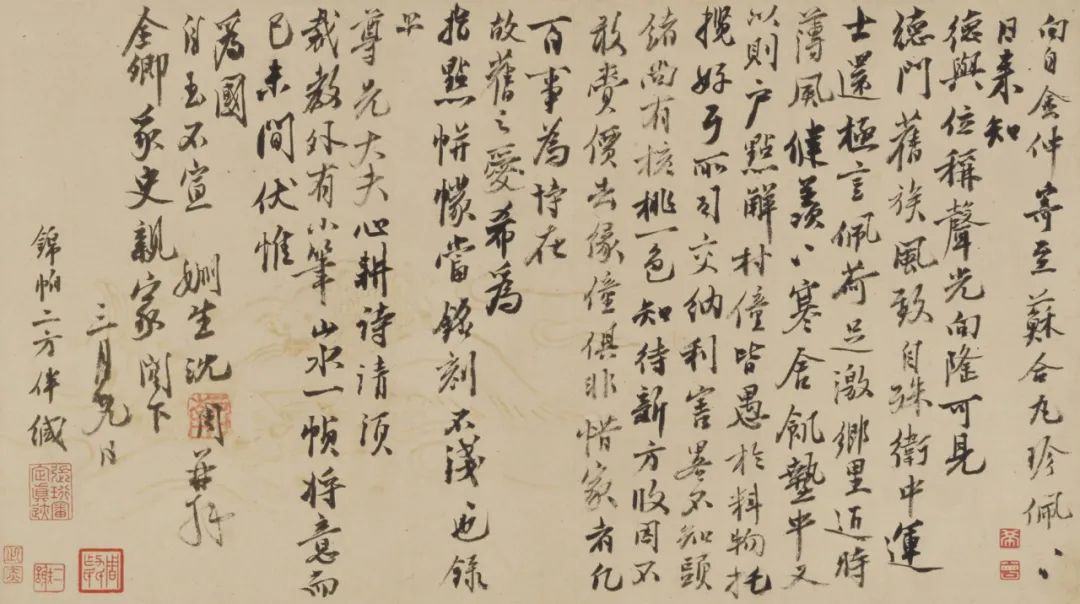 向自金仲寄至蘇合丸珍佩〻
日来知
德與位稱聲光向隆可見
德門舊族風致自殊衛中運
士還極言佩荷足激鄉里近時
薄風健羡〻寒舍飢墊中又
以則户點解村僮皆愚於料物托
攬好歹所司交納利害畧不知頭
緒尚有核桃一色知待新方收因不
敢賣價去緣僮俱非惜家者凡
百事為恃在
故舊之愛希為
指點帡幪當銘刻不淺也録
上
尊先大夫心耕詩請須
裁教外有小筆山水一幀将意而
已未間伏惟
為國
自玉不宣 姻生沈周再拜
金卿家史親家閣下
三月九日
錦帕二方伴緘
張珩審定真跡